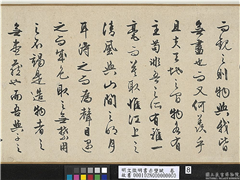 而觀之則物與我皆
無盡也而又何羨乎
且夫天地之間物各有
主苟非吾之所有雖一
毫而莫取惟江上之
清風與山間之明月
耳得之而為聲目遇
之而成色取之無禁用
之不竭是造物者之
無盡藏也而吾與子之
明文徵明書赤壁賦 卷
8
國立故宮博物院